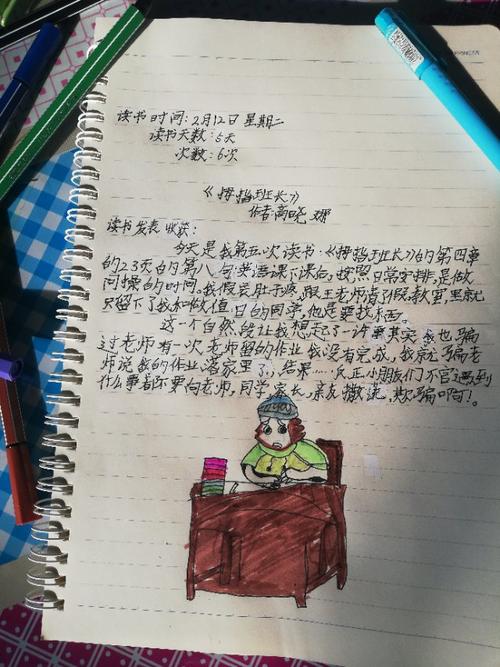 读书时间:2月12日 星期二
读书天数:5天
次数:6次
《拇指班长》
作者:商晓娜
读书发表 收获:
今天是我第五次读书.《拇指班长》的第四章
的23页的第八句英语课下课后,按照日常安排,是做
间操的时间,我假装肚子疼,跟王老师请假教室里就
只留下了我和做值日的同学,他还要找东西.
这一个自然段让我想起了一件事其实我也骗
过老师有一次老师留的作业我没有完成,我就骗老
师说我的作业落家里了,结果……反正小朋友们不管遇到
什么事都不要向老师,同学家长,亲友撒谎,欺骗啊!